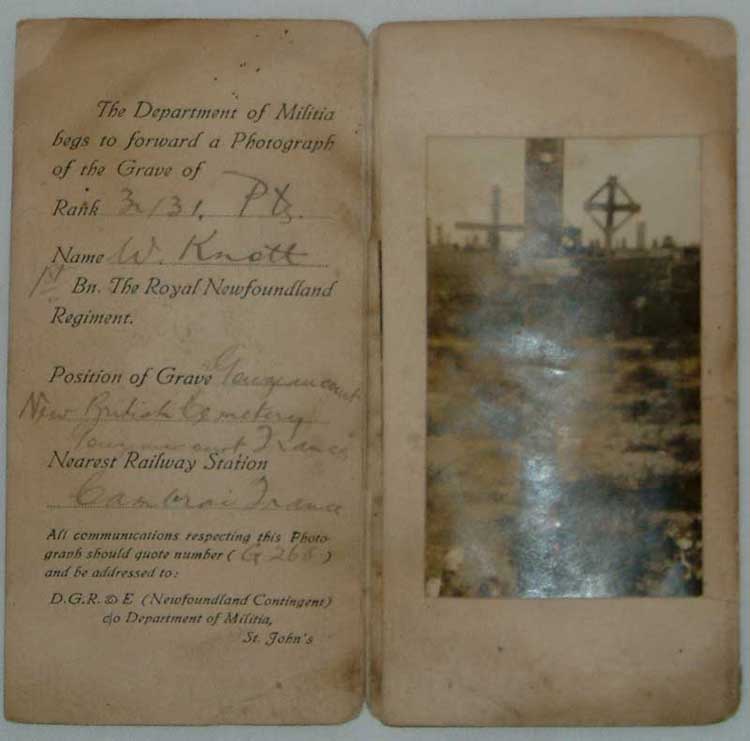 The Department of Militia
begs to forward a Photograph
of the Grave of
Rank 3131. Pte.
Name W. Knott
1st Bn. The Royal Newfoundland
Regiment.
Position of Grave Gouzeaucourt
New British Cemetery
Gouzeaucourt France
Nearest Railway Station
Cambrai France
All communications respecting this Photo-
graph should quote number (G 268)
and be addressed to:
D.G.R. & E (Newfoundland Contingent)
c/o Department of Militia,
St. John's